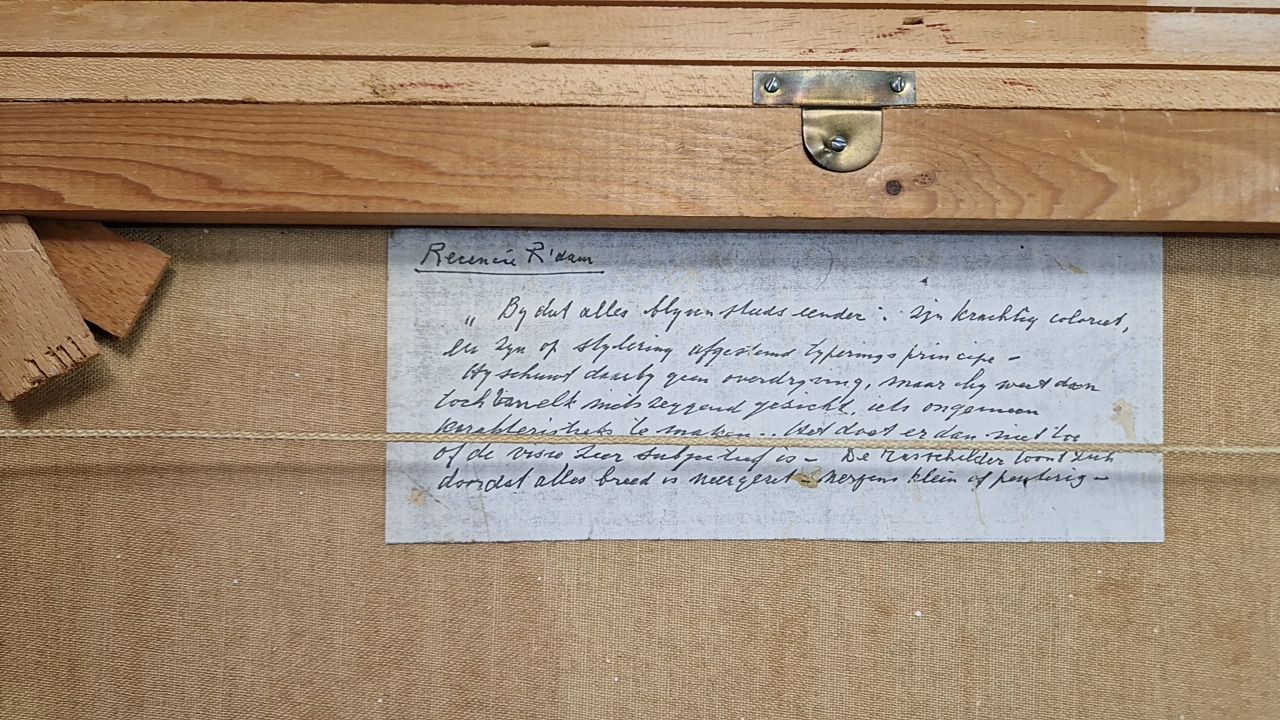 Recencie R'dam
„ By dat alles blyven steeds eender: zyn krachtig coloriet,
en zyn op stylering afgestemd typerings principe –
Hy schuwt daarby geen overdryving, maar hy weet dan
toch van elk niets zeggend gezicht, iets ongemeen
karakteristieks te maken.. Het doet er dan niet toe
of de visie zeer subjectief is – De rasschilder toont zich
doordat alles breed is neergezet – nergens klein of peuterig –